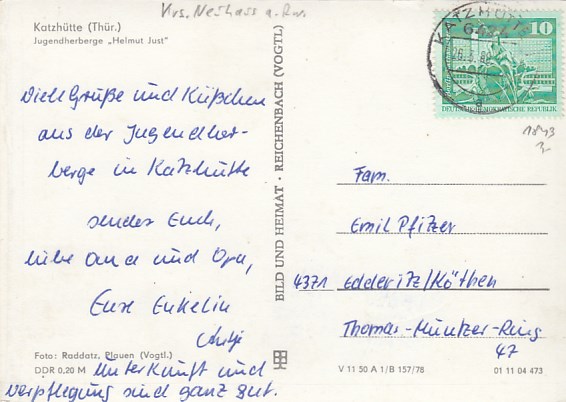 Krs. Neuhaus a. Rw.
Katzhütte (Thür.)
Jugendherberge „Helmut Just"
Viele Grüße und Küßchen
aus der Jugendher-
berge in Katzhütte
sendet Euch,
liebe Oma und Opa,
Eure Enkelin
Antje
Foto: Raddatz, Plauen (Vogtl.)
DDR 0,20 M
Unterkunft und
Verpflegung sind ganz gut.
BILD UND HEIMAT · REICHENBACH (VOGTL)
KATZHÜTTE
10
DEUTSCHE DEMOKRATISCHE REPUBLIK
1843
Fam.
Emil Pfitzer
4371 Edderitz/Köthen
Thomas-Müntzer-Ring
47
V 11 50 A 1/B 157/78
01 11 04 473